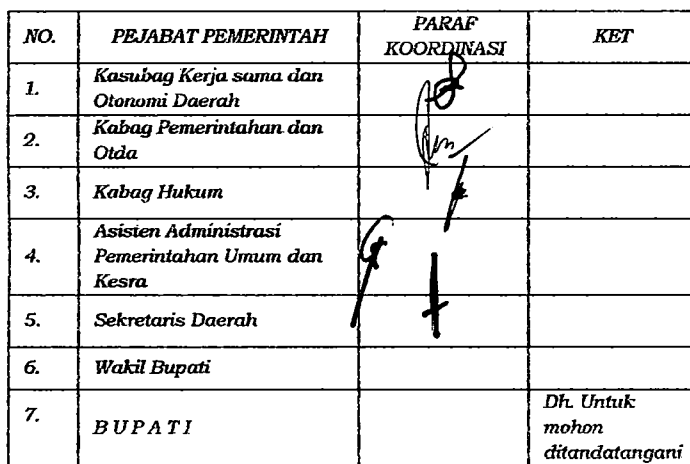 NO. PEJABAT PEMERINTAH PARAF KOORDINASI KET
1. Kasubag Kerja sama dan
Otonomi Daerah
2. Kabag Pemerintahan dan
Otda
3. Kabag Hukum
4. Asisten Administrasi
Pemerintahan Umum dan
Kesra
5. Sekretaris Daerah
6. Wakil Bupati
7. B U P A T I
Dh. Untuk
mohon
ditandatangani